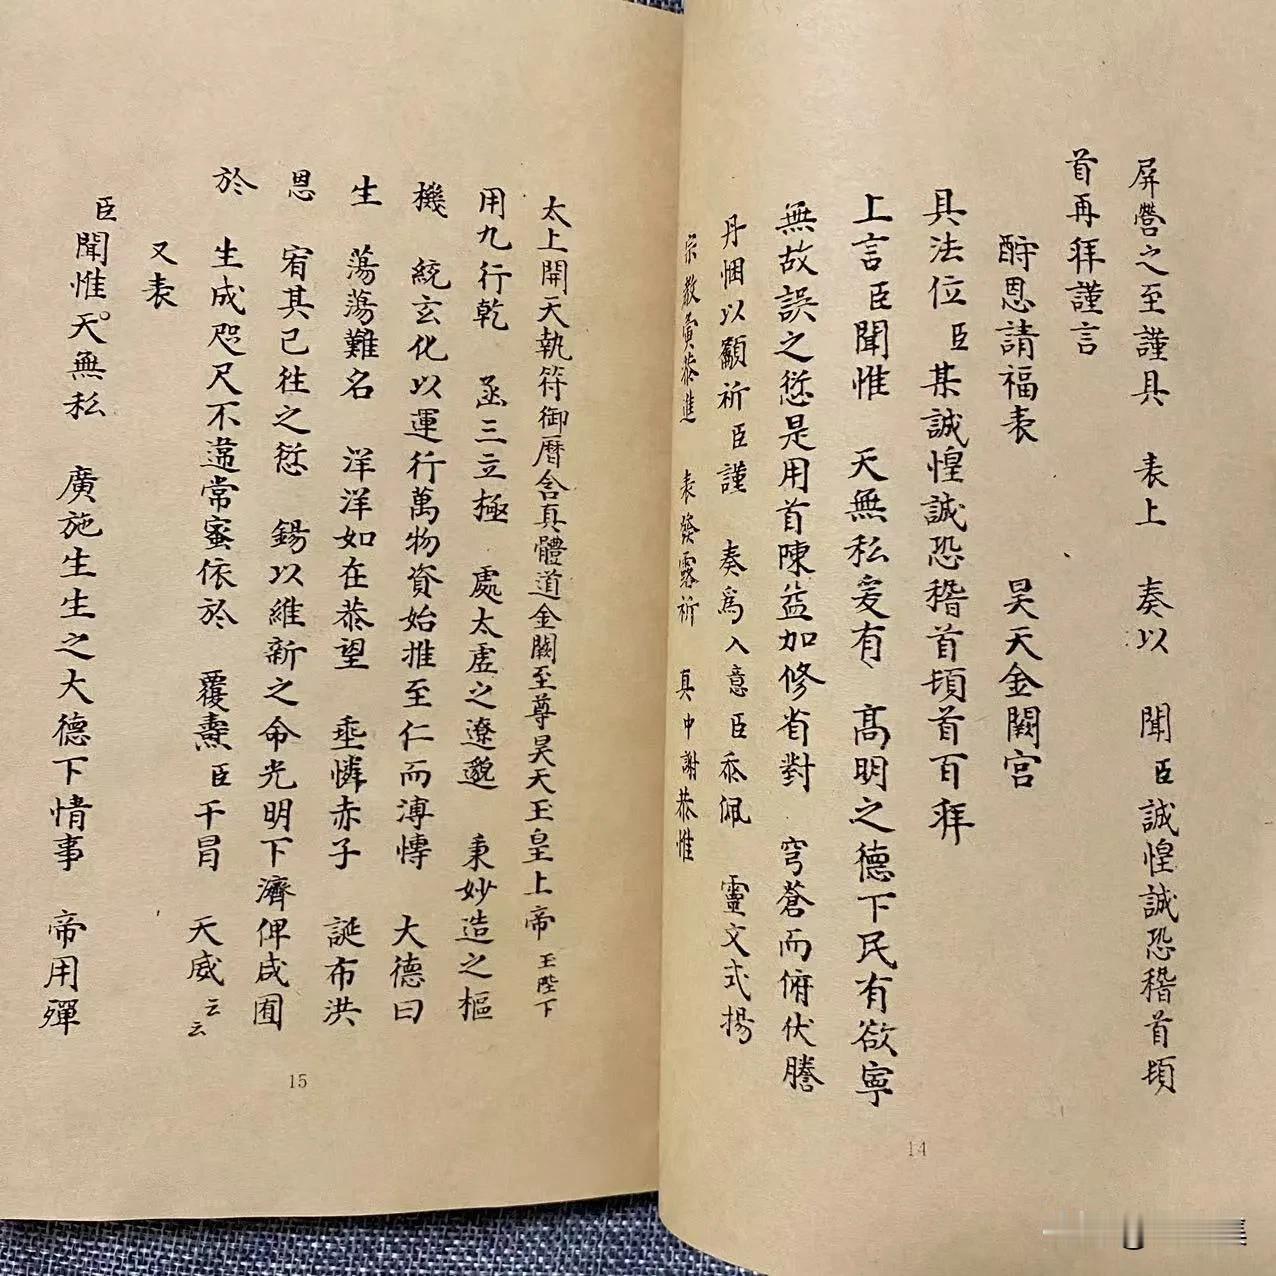 屏營之至謹具　表上　奏以　聞臣誠惶誠恐稽首頓
首再拜謹言
酧恩請福表　昊天金闕宮
具法位臣某誠惶誠恐稽首頓首百拜
上言臣聞惟　天無私爰有　高明之德下民有欲寧
無故誤之愆是用首陳益加修省對　穹蒼而俯伏謄
丹悃以顓祈臣謹　奏爲入意臣忝佩　靈文式揚
宗教黃恭進　表發露祈　真中謝恭惟
14
太上開天執符御曆含真體道金闕至尊昊天玉皇上帝玉陛下
用九行乾　丞三立極　處太虛之遼邈　秉妙造之樞
機　統玄化以運行萬物資始推至仁而溥博　大德曰
生　蕩蕩難名　洋洋如在恭望　垂憐赤子　誕布洪
恩　宥其已往之愆　錫以維新之命光明下濟俾咸囿
於　生成咫尺不違常蜜依於　覆燾臣干冒　天威云云
又表
臣聞惟天無私　廣施生生之大德下情事　帝用殫
15